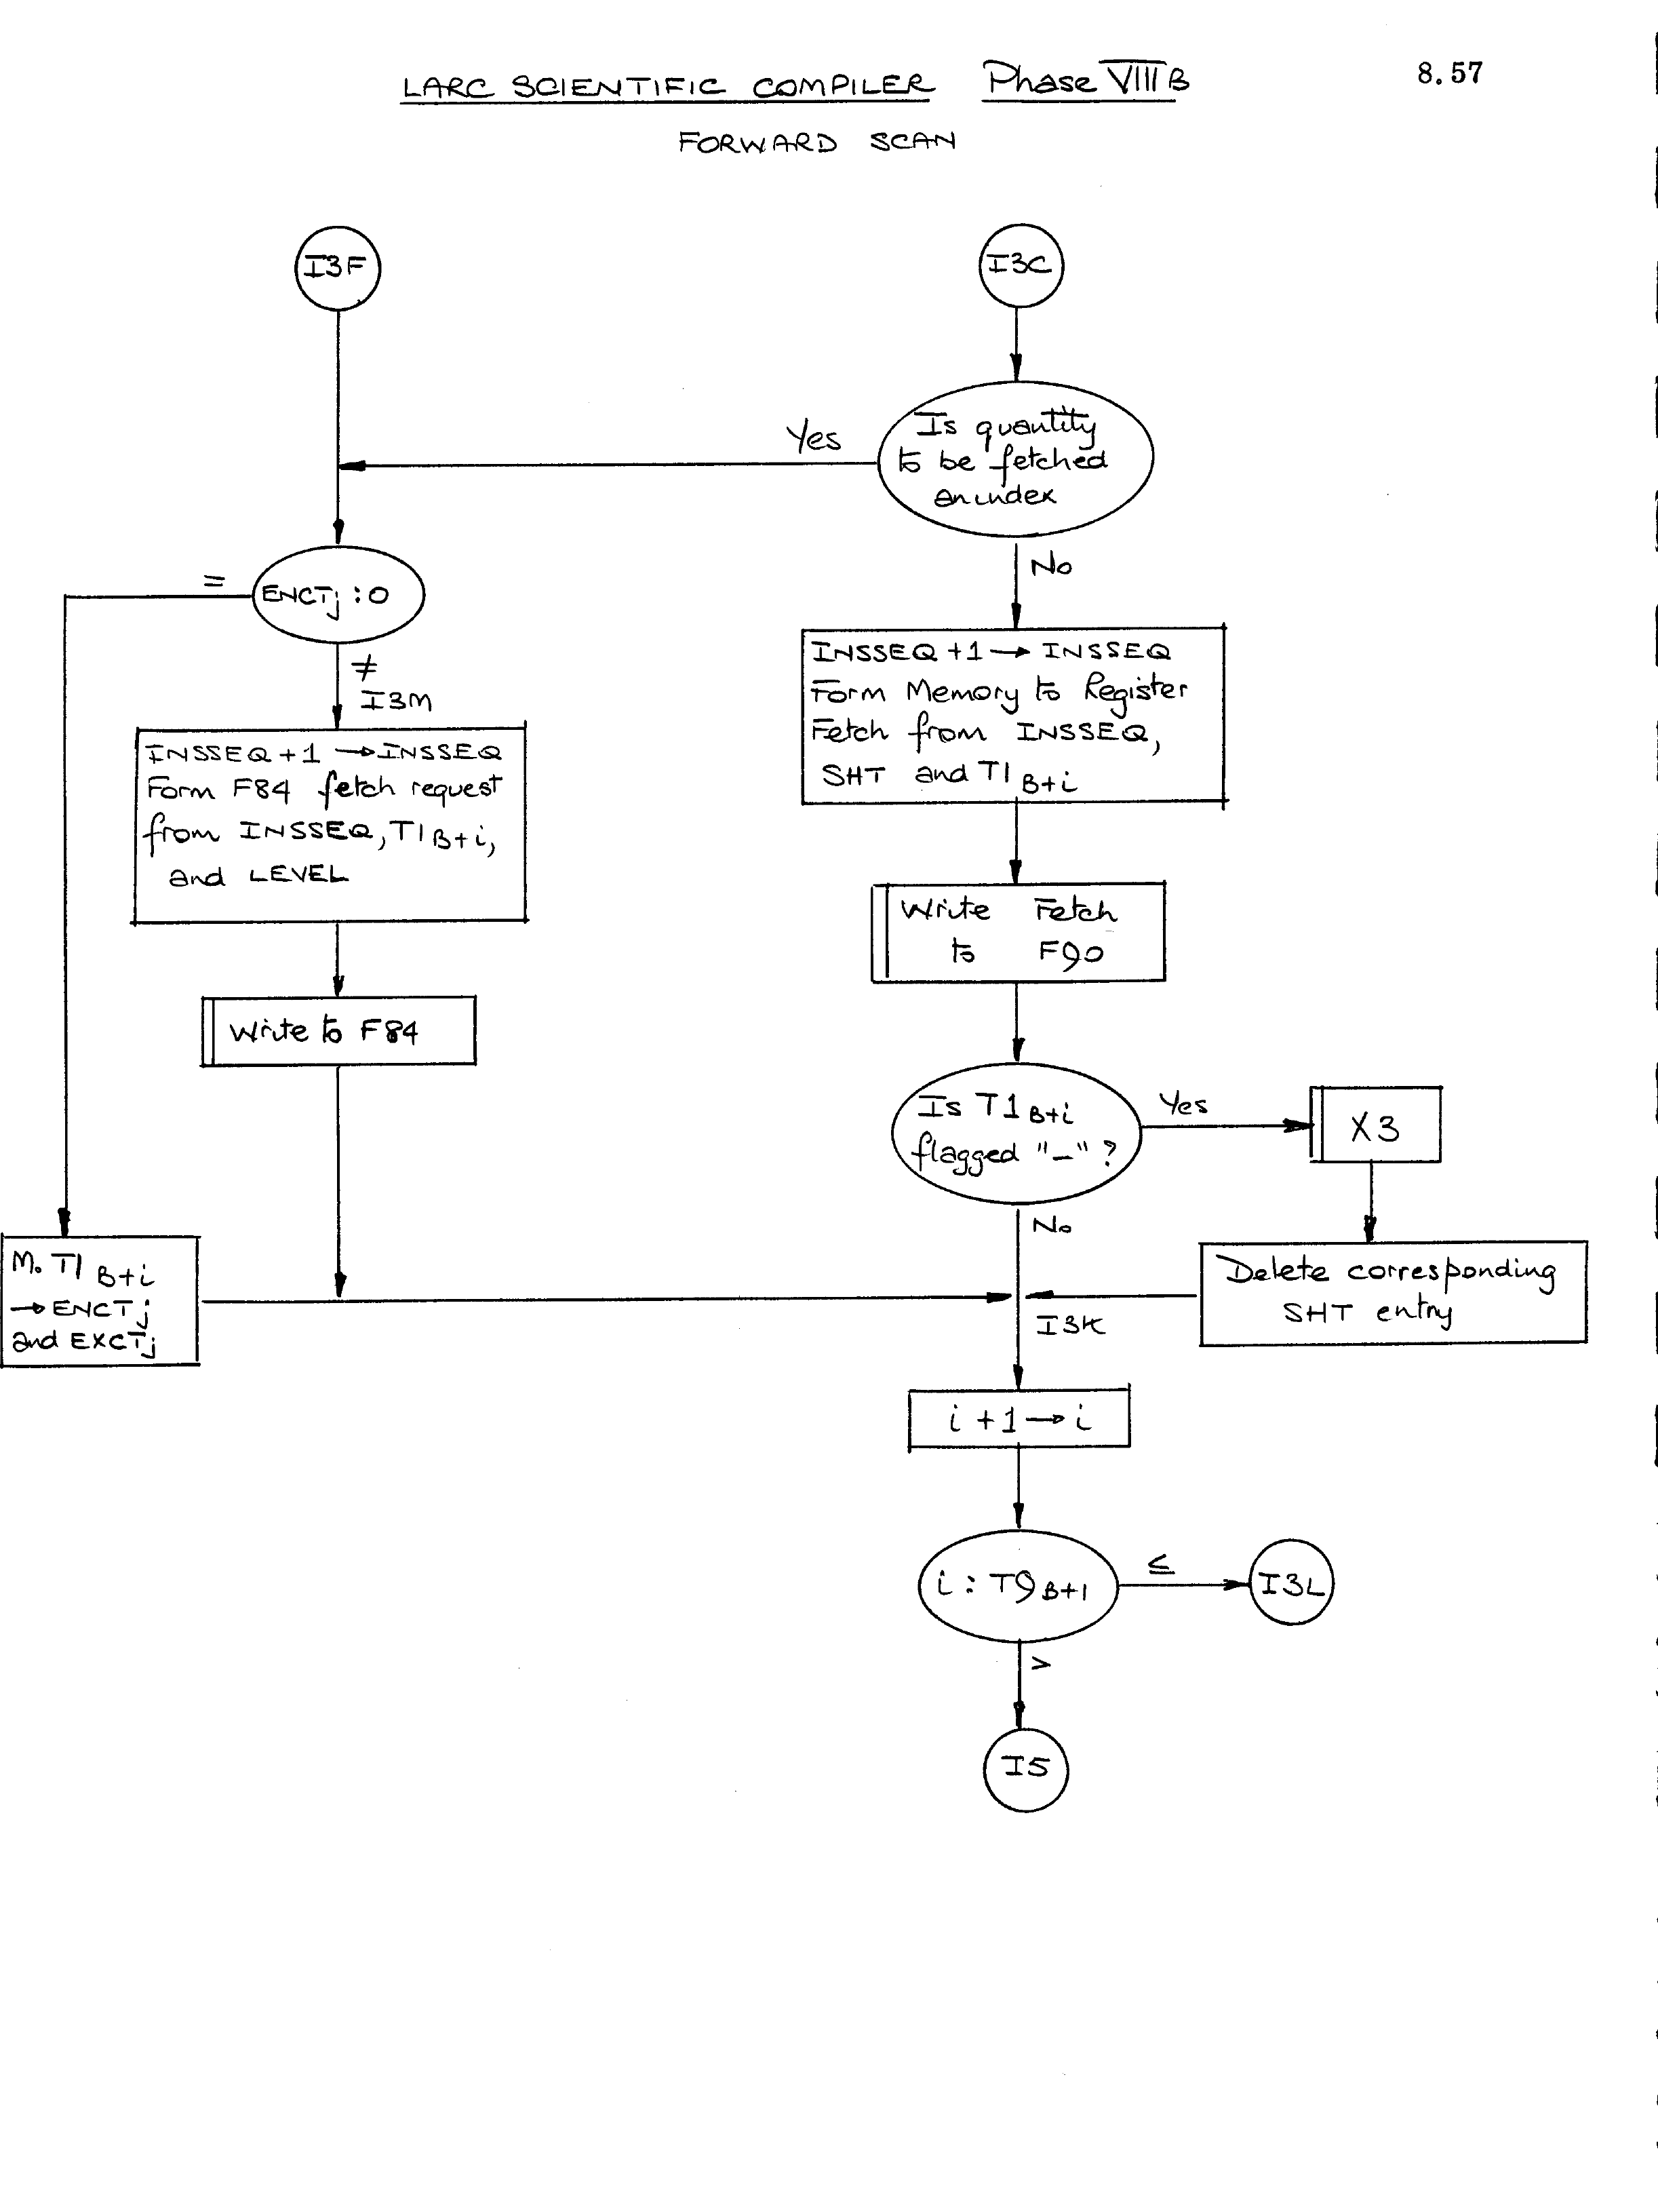 LARC SCIENTIFIC COMPILER Phase VIII B
8.57
FORWARD SCAN
I3F
I3C
Is quantity
to be fetched
an index
Yes
No
ENCTj : 0
=
≠
I3M
INSSEQ + 1 → INSSEQ
Form F84 fetch request
from INSSEQ, T1 B+i,
and LEVEL
Write to F84
M. T1 B+i
→ ENCTj
and EXCTj
INSSEQ + 1 → INSSEQ
Form Memory to Register
Fetch from INSSEQ,
SHT and T1 B+i
Write Fetch
to F90
Is T1 B+i
flagged "-" ?
Yes
X3
Delete corresponding
SHT entry
No
I3K
i + 1 → i
i : T9 B+1
≤
I3L
>
I5